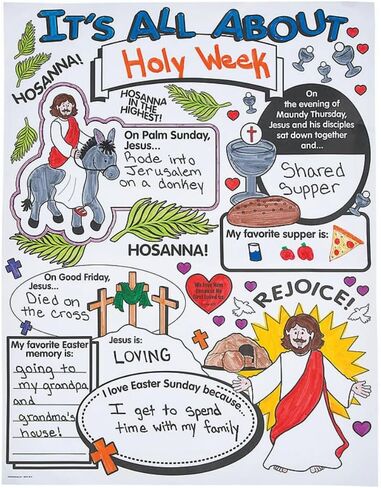 IT'S ALL ABOUT
Holy Week
HOSANNA!
HOSANNA
IN THE
HIGHEST!
On Palm Sunday,
Jesus...
Rode into
Jerusalem
on a donkey
On
the evening of
Maundy Thursday,
Jesus and his disciples
sat down together
and...
Shared
Supper
My favorite supper is:
HOSANNA!
On Good Friday,
Jesus...
Died on
the cross
We love Him
because He
first loved us
REJOICE!
My favorite Easter
memory is:
going to
my grandpa
and
grandma's
house!
Jesus is:
LOVING
I love Easter Sunday because...
I get to spend
time with my family